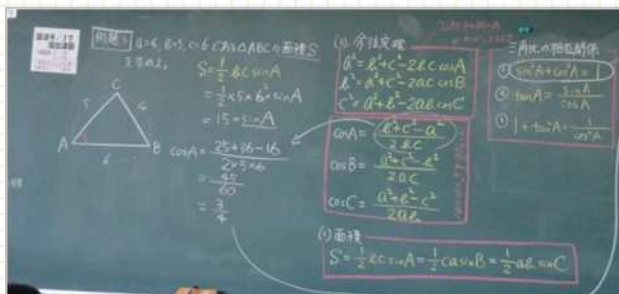 例題5 a=4, b=5, c=6である△ABCの面積S
S=1/2 bc sinA
=1/2×5×6×sinA
=15×sinA
cosA=(25+36-16)/(2×5×6)
=45/60
=3/4
C
5
6
A
B
6
余弦定理
a²=b²+c²-2bc cosA
b²=a²+c²-2ac cosB
c²=a²+b²-2ab cosC
cosA=(b²+c²-a²)/2bc
cosB=(a²+c²-b²)/2ac
cosC=(a²+b²-c²)/2ab
面積
S=1/2 bc sinA=1/2 ca sinB=1/2 ab sinC
三角比の相互関係
① sin²A+cos²A=1
② tanA=sinA/cosA
③ 1+tan²A=1/cos²A